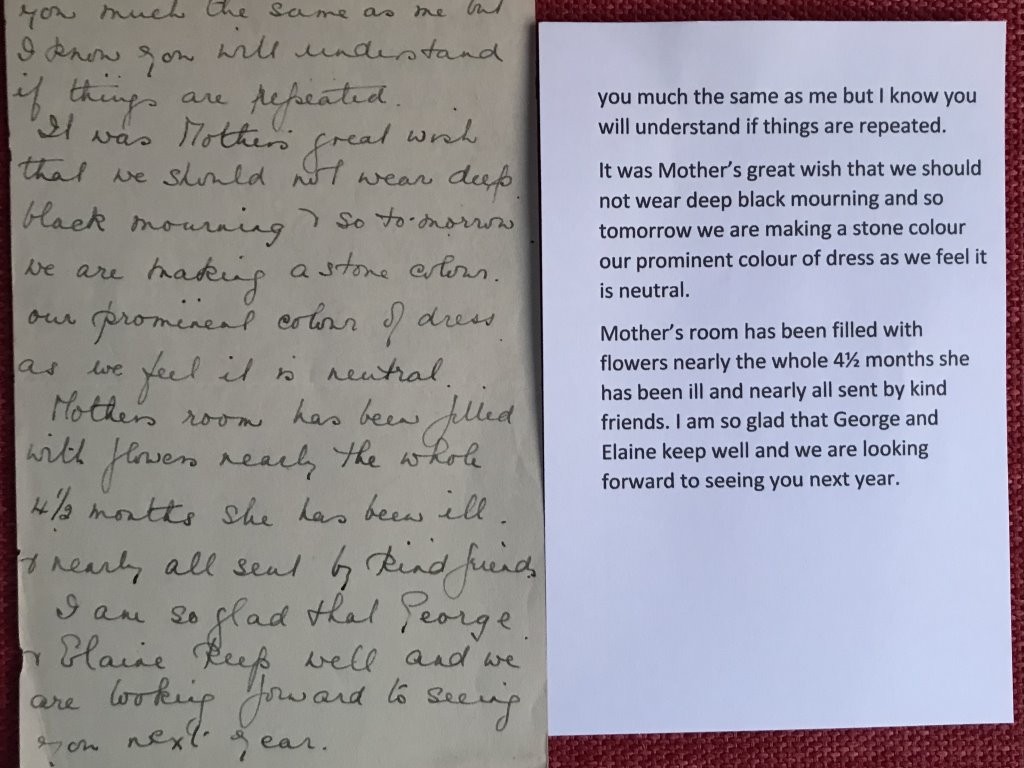 you much the same as me but
I know you will understand
if things are repeated.
It was Mothers great wish
that we should not wear deep
black mourning & so to-morrow
we are making a stone colour.
our prominent colour of dress
as we feel it is neutral.
Mothers room has been filled
with flowers nearly the whole
4½ months she has been ill.
& nearly all sent by kind friends
I am so glad that George
& Elaine keep well and we
are looking forward to seeing
you next year.
you much the same as me but I know you
will understand if things are repeated.
It was Mother’s great wish that we should
not wear deep black mourning and so
tomorrow we are making a stone colour
our prominent colour of dress as we feel it
is neutral.
Mother’s room has been filled with
flowers nearly the whole 4½ months she
has been ill and nearly all sent by kind
friends. I am so glad that George and
Elaine keep well and we are looking
forward to seeing you next year.